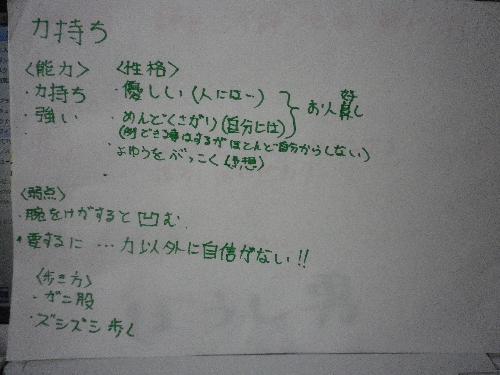 力持ち
〈能力〉 〈性格〉
・力持ち ・優しい(人には…)
・強い ・めんどくさがり(自分には) お人好し
(例 できる事はするがほとんど自分からしない)
・よゆうをぶっこく(予想)
〈弱点〉
・腕をけがすると凹む
・要するに…力以外に自信がない!!
〈歩き方〉
・ガニ股
・ズシズシ歩く